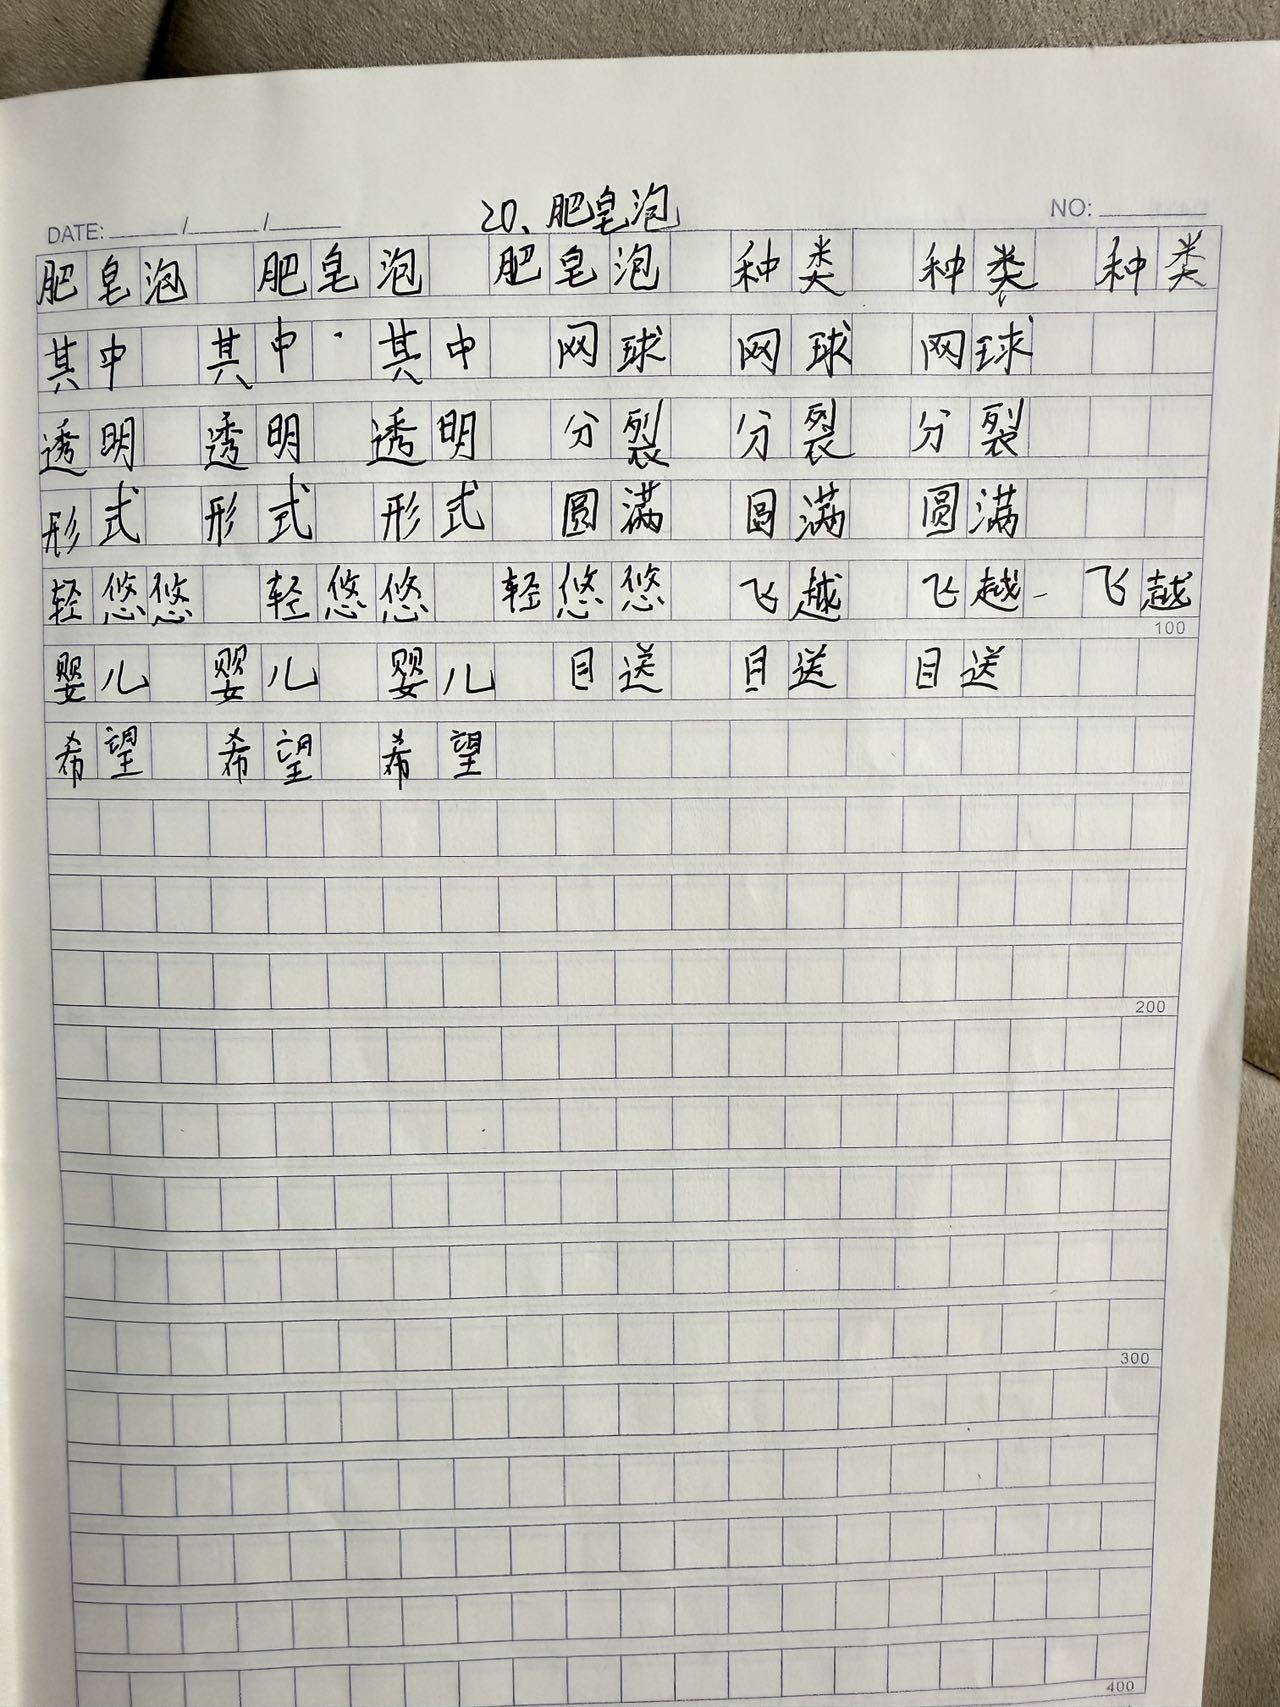 20、肥皂泡
DATE: / / NO:
肥皂泡 肥皂泡 肥皂泡 种类 种类 种类
其中 其中 其中 网球 网球 网球
透明 透明 透明 分裂 分裂 分裂
形式 形式 形式 圆满 圆满 圆满
轻悠悠 轻悠悠 轻悠悠 飞越 飞越 飞越
100
婴儿 婴儿 婴儿 目送 目送 目送
希望 希望 希望
200
300
400